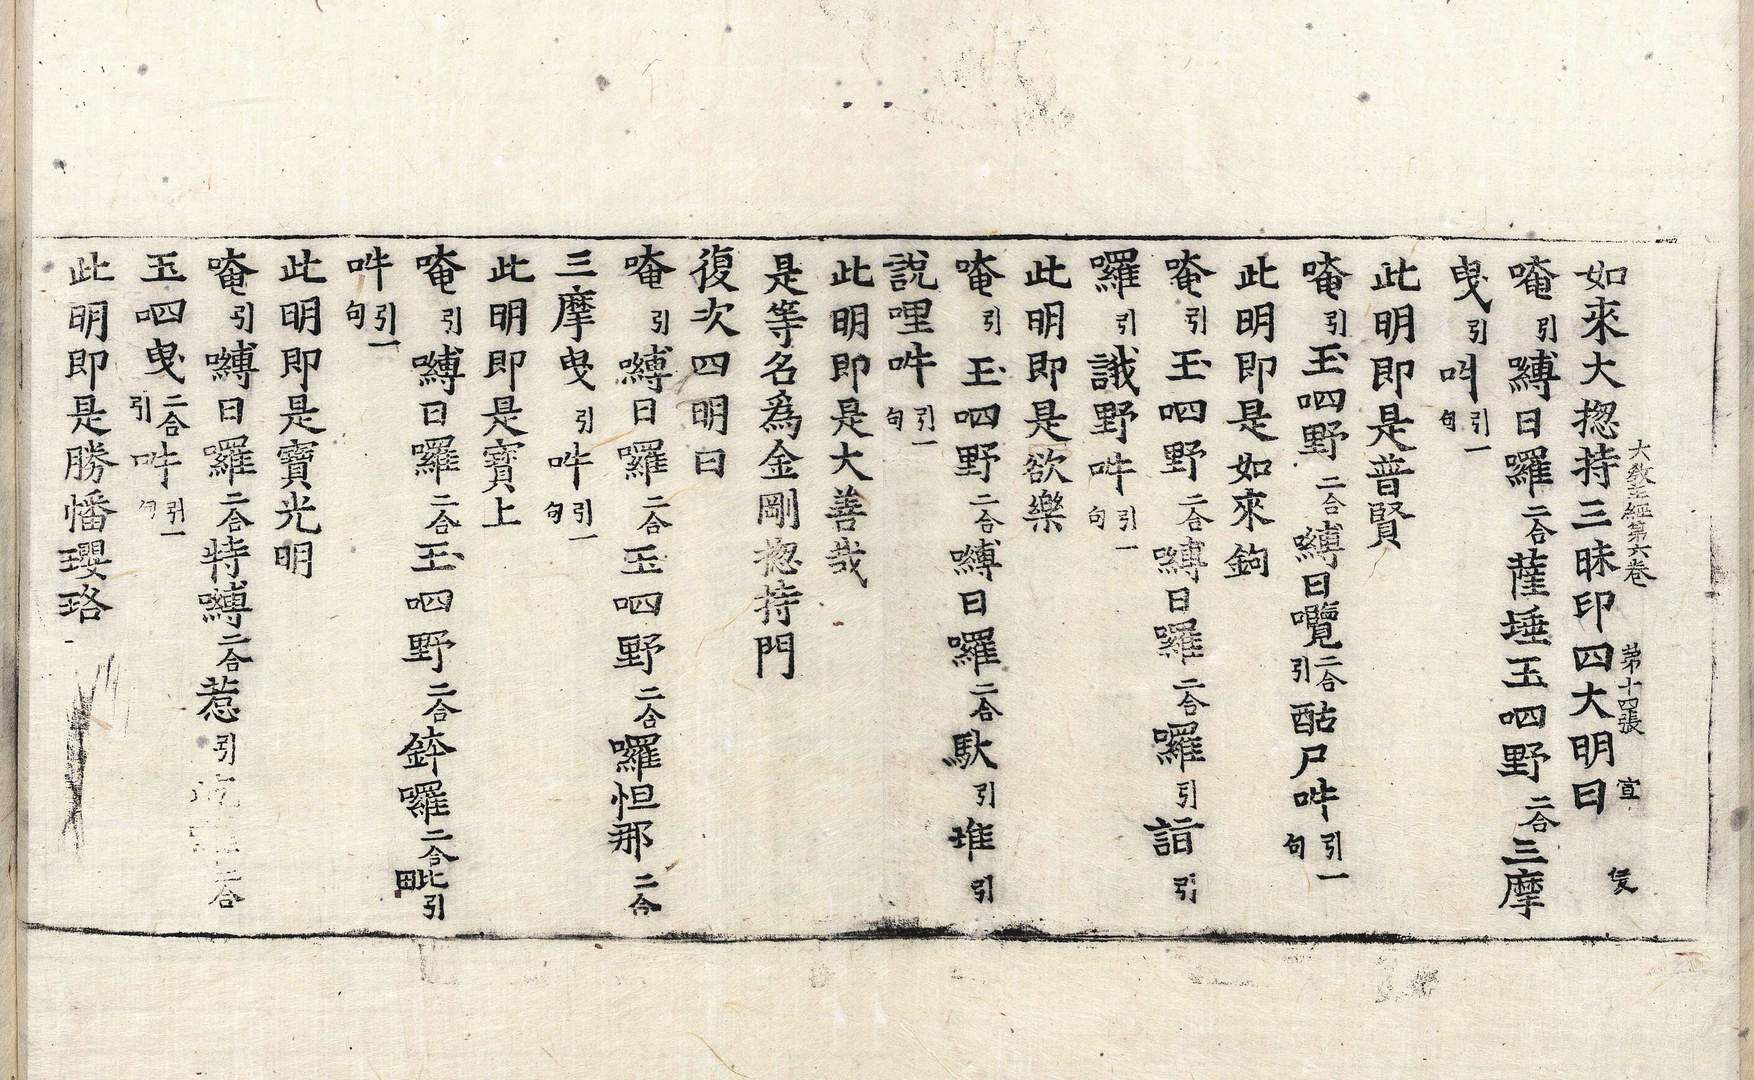 大敎王經第六卷 第十四張 宣
如來大揔持三昧印四大明曰
唵引嚩日囉二合薩埵玉呬野二合三摩
曳引吽引一句
此明即是普賢
唵引玉呬野二合嚩日嚂二合引酤尸吽引一句
此明即是如來鉤
唵引玉呬野二合嚩日囉二合囉引誐
囉引誐野吽引一句
此明即是欲樂
唵引玉呬野二合嚩日囉二合馱引堆引
說哩吽引一句
此明即是大善哉
是等名爲金剛揔持門
復次四明曰
唵引嚩日囉二合玉呬野二合囉怛那二合
三摩曳引吽引一句
此明即是寶上
唵引嚩日囉二合玉呬野二合鉢囉二合毗引
吽引一句
此明即是寶光明
唵引嚩日囉二合特嚩二合惹引二合
玉呬曳二合引吽引一句
此明即是勝幡瓔珞